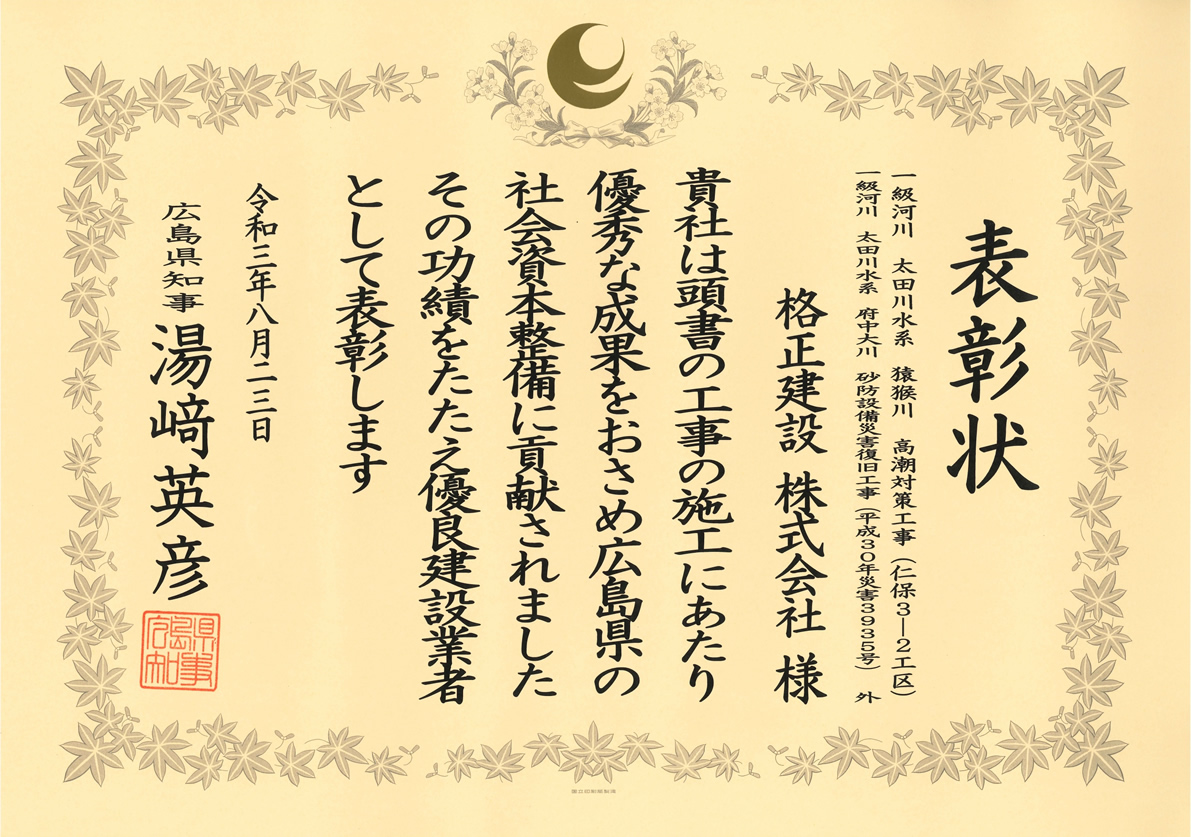 表彰状
一級河川　太田川水系　猿猴川　高潮対策工事（仁保３―２工区）
一級河川　太田川水系　府中大川　砂防設備災害復旧工事（平成３０年災害３９３５号）　外
格正建設　株式会社　様
貴社は頭書の工事の施工にあたり
優秀な成果をおさめ広島県の
社会資本整備に貢献されました
その功績をたたえ優良建設業者
として表彰します
令和三年八月二三日
広島県知事　湯﨑英彦
広島県知事